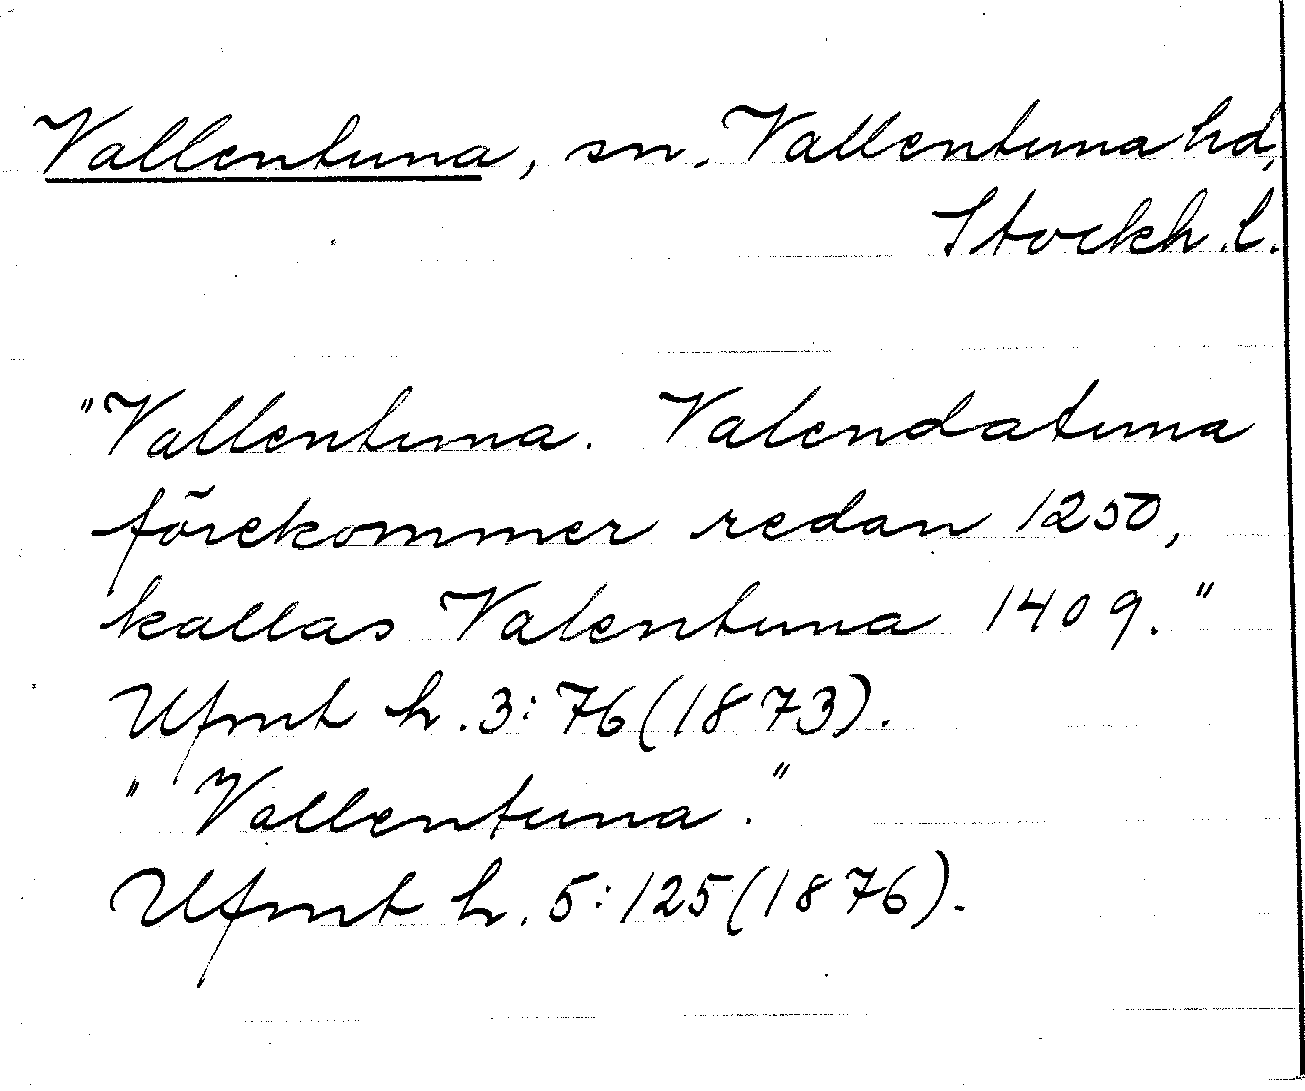 Vallentuna, sn. Vallentuna hd,
Stockh. l.
"Vallentuna. Valendatuna
förekommer redan 1250,
kallas Valentuna 1409."
Ufmt h. 3:76 (1873).
"Vallentuna."
Ufmt h. 5:125 (1876).